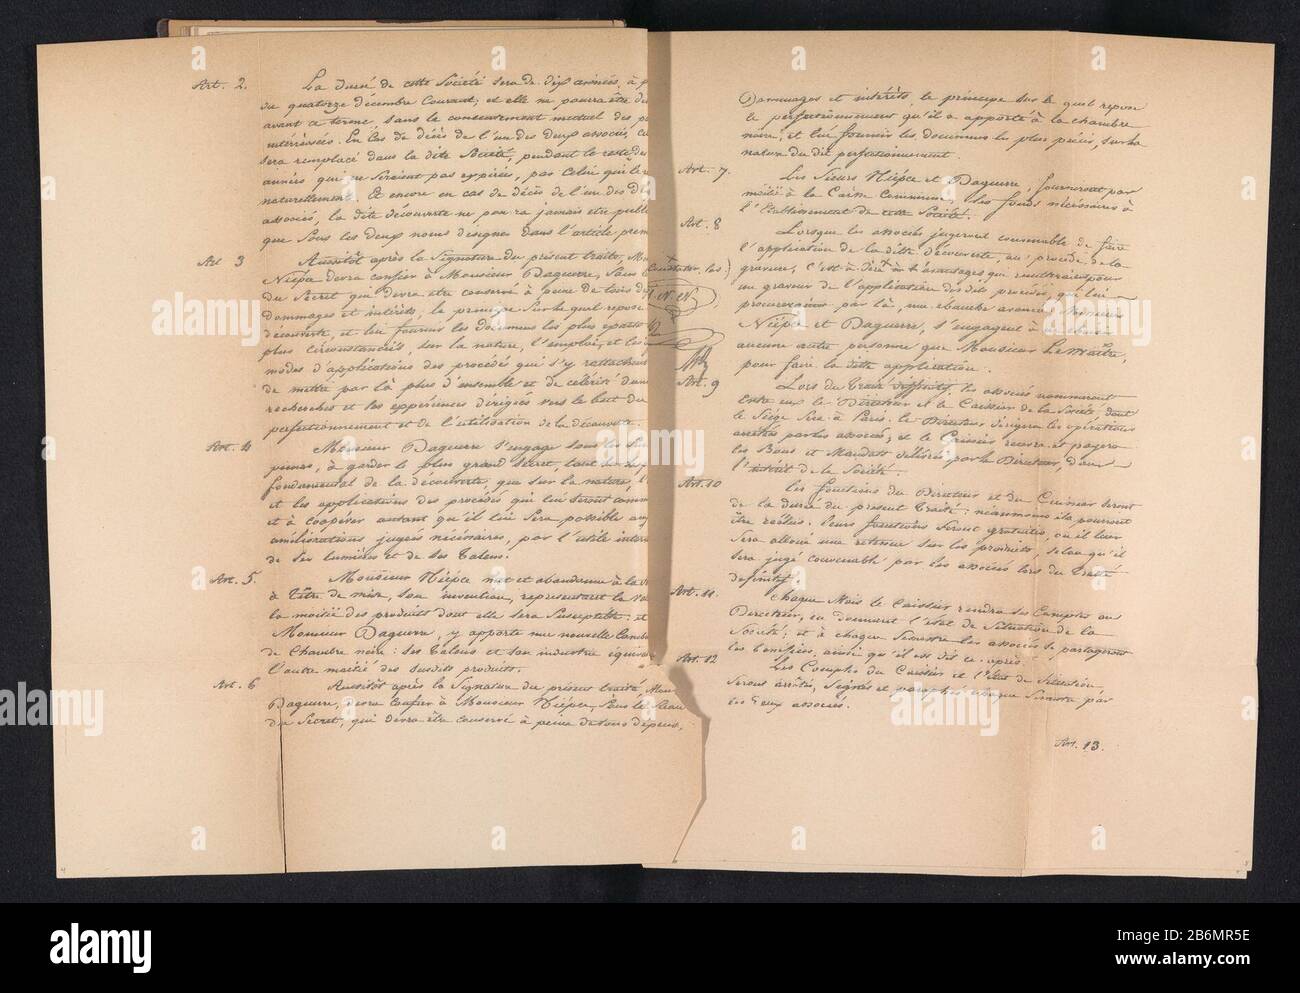 Art. 2. La duré de cette Société sera de dix années, à p
du quatorze décembre Courant; et elle ne pourra être di
avant ce terme, sans le consentement mutuel des pa
intéréssées. En Cas de décès de l'un des deux associés, ce
sera remplacé dans la dite Société, pendant le reste des
années qui ne seraient pas expirées, par Celui qui le
naturellement. Et encore en cas de décès de l'un des D
associés, la dite découverte ne pourra jamais etre publ
que Sous les deux noms désignés dans l'article prem
Art 3 Aussitôt après la Signature du présent traité, Mon
Niépce devra confier à Monsieur Daguerre, Sous le
du Secret qui devra etre conservé à peine de tous dé
dommages et intérêts, le principe Sur le quel repose
découverte, et lui fournir les documens les plus
plus circonstanciés, sur la nature, l'emploi, et les
modes d'applications des procédés qui s'y rattachent
de mettre par là plus d'ensemble et de célérité dans
recherches et les expériences dirigées vers le but du
perfectionnement et de l'utilisation de la découverte.
Art. 4 Monsieur Daguerre s'engage sous les sus
peines, à garder le plus grand Secret, tant sur le p
fondamental de la découverte, que sur la nature, l'
et les applications des procédés qui lui seront comm
et à Coopérer autant qu'il lui Sera possible aux
améliorations jugées nécessaires, par l'utile inter
de Ses lumières et de Ses Talens.
Art. 5. Monsieur Niépce met et abandonne à la S
à Titre de mise, Son invention, représentant la Va
la moitié des produits dont elle sera Susceptible; et
Monsieur Daguerre, y apporte une nouvelle Comb
de Chambre noire; Ses Talens et Son industrie équiva
l'autre moitié des susdits produits.
Art. 6 Aussitôt après la Signature du présent traité, Mon
Daguerre, devra Confier à Monsieur Niépce, Sous le Sceau
du Secret, qui devra être Conservé à peine de tous dépens,
Dommages et intérêts, le principe sur le quel repose
le perfectionnement qu'il a apporté à la chambre
noire, et lui fournir les documens les plus précis, sur la
nature du dit perfectionnement.
Art. 7. Les Sieurs Niépce et Daguerre, fourniront par
moitié à la Caisse Commune, les fonds nécessaires à
l'Etablissement de cette Société.
Art. 8 Lorsque les associés jugeront convenable de faire
l'application de la dite découverte, au procédé de la
gravure, c'est à dire de constater les avantages qui résulteraient pour
un graveur de l'application des dits procédés, qui lui
procureraient par là, une ébauche avancée, Messieurs
Niépce et Daguerre, s'engagent à ne choisir
aucune autre personne que Monsieur Lemaître,
pour faire la dite application.
Art. 9 Lors du Traité définitif, les associés nommeront
Entre eux le Directeur et le Caissier de la Société, dont
le Siège Sera à Paris. Le Directeur, dirigera les opérations
arrêtées par les associés; et le Caissier recevra et payera
les Bons et Mandats délivrés par le Directeur, dans
l'intérêt de la Société.
Art. 10 Les fonctions du Directeur et du Caissier seront
de la durée du présent Traité; néanmoins ils pourront
être réélus. Leurs fonctions Seront gratuites, ou il leur
Sera alloué une retenue sur les produits, selon qu'il
sera jugé convenable par les associés lors du Traité
définitif.
Art. 11. Chaque Mois le Caissier rendra Ses Comptes au
Directeur, en donnant l'état de Situation de la
Société; et à chaque Semestre les associés se partageront
les bénéfices, ainsi qu'il est dit ci-après.
Art. 12 Les Comptes du Caissier et l'état de Situation
Seront arrêtés, Signés et paraphés chaque Semestre par
les deux associés.
Art. 13.
alamy
Image ID: 2B6MR5E
www.alamy.com